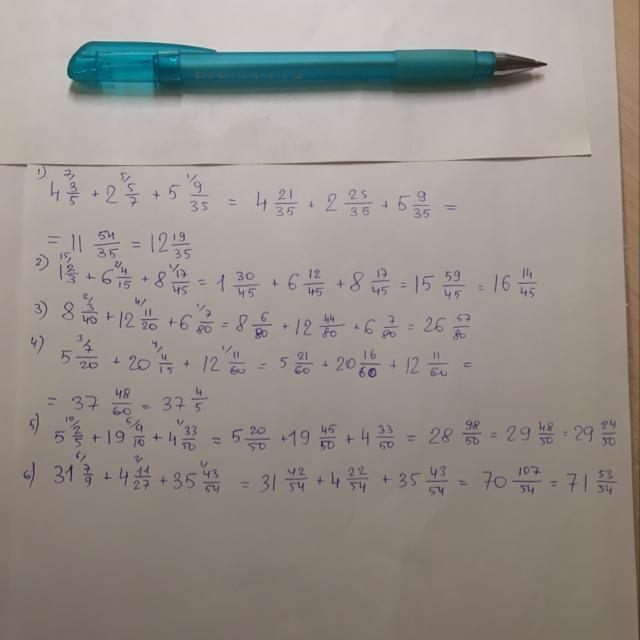 1) 4 3/5 + 2 5/7 + 5 9/35 = 4 21/35 + 2 25/35 + 5 9/35 =
= 11 54/35 = 12 19/35
2) 1 2/3 + 6 4/15 + 8 17/45 = 1 30/45 + 6 12/45 + 8 17/45 = 15 59/45 = 16 14/45
3) 8 3/40 + 12 11/20 + 6 7/80 = 8 6/80 + 12 44/80 + 6 7/80 = 26 57/80
4) 5 7/20 + 20 4/15 + 12 11/60 = 5 21/60 + 20 16/60 + 12 11/60 =
= 37 48/60 = 37 4/5
5) 5 2/5 + 19 9/10 + 4 33/50 = 5 20/50 + 19 45/50 + 4 33/50 = 28 98/50 = 29 48/50 = 29 24/50
6) 31 7/9 + 4 11/27 + 35 43/54 = 31 42/54 + 4 22/54 + 35 43/54 = 70 107/54 = 71 53/54